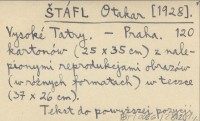 ŠTÁFL Otakar [1928].
Vysoké Tatry. – Praha. 120
kartonów (25 x 35 cm) z nale-
pionymi reprodukcjami obrazów
(w różnych formatach) w teczce
(37 x 26 cm).
Tekst do powyższej pozycji